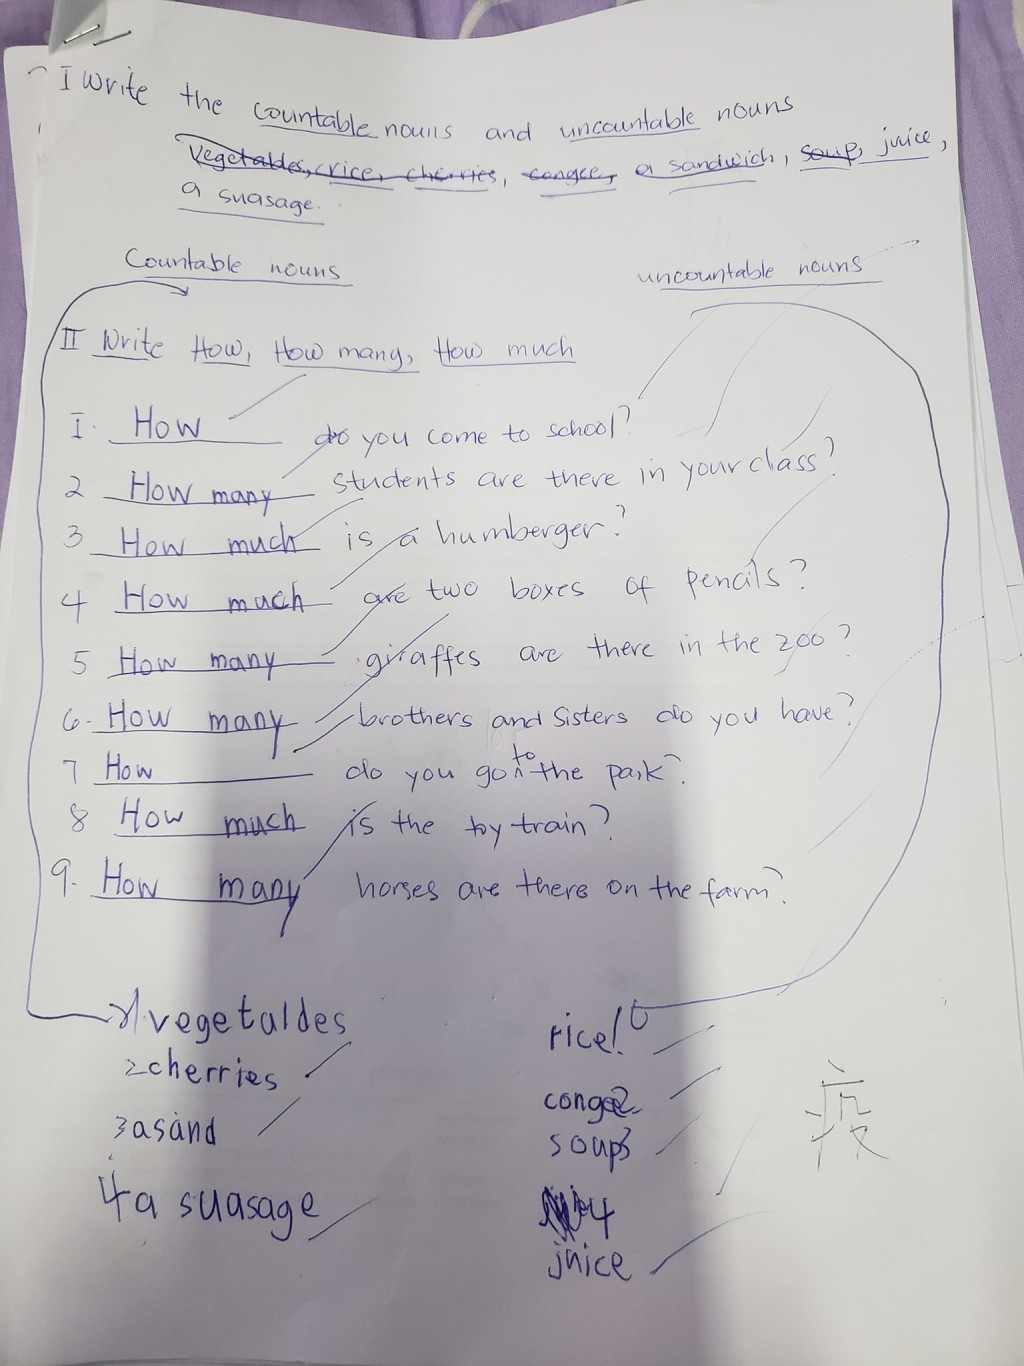 I Write the countable nouns and uncountable nouns
Vegetaldes, rice, cherries, congee, a sandwich, soup, juice,
a suasage.
Countable nouns
uncountable nouns
II Write How, How many, How much
1. How do you come to school?
2 How many students are there in your class?
3 How much is a humberger?
4 How much are two boxes of pencils?
5 How many giraffes are there in the zoo?
6. How many brothers and sisters do you have?
7 How do you go to the park?
8 How much is the toy train?
9. How many horses are there on the farm?
1 vegetaldes
rice!
2 cherries
congee 2
3 a sand
soup 3
4 a suasage
4
juice
疫